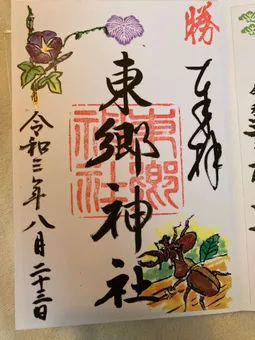 勝
奉拝
東郷神社
東郷神社
令和三年八月二十三日